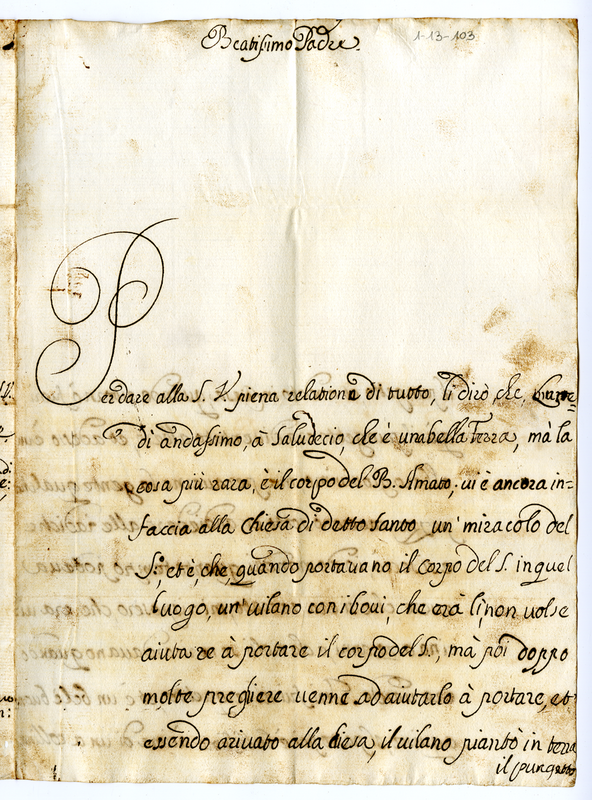 Beatissimo Padre.
1-13-103
Per dare alla S. V. piena relatione di tutto, li dirò che, Lune=
dì andassimo, à Saludecio, che è una bella Terra, mà la
cosa più rara, è il corpo del B. Amato; vi è ancora in=
faccia alla Chiesa di detto Santo un' miracolo del
S.º, et è, che, quando portavano il Corpo del S. in quel
luogo, un' vilano con i bovi, che erà lì, non volse
aiutare à portare il corpo del S., mà poi doppo
molte preghiere venne ad aiutarlo à portare, et
essendo arivato alla chiesa, il vilano piantò in terra
il pungetto